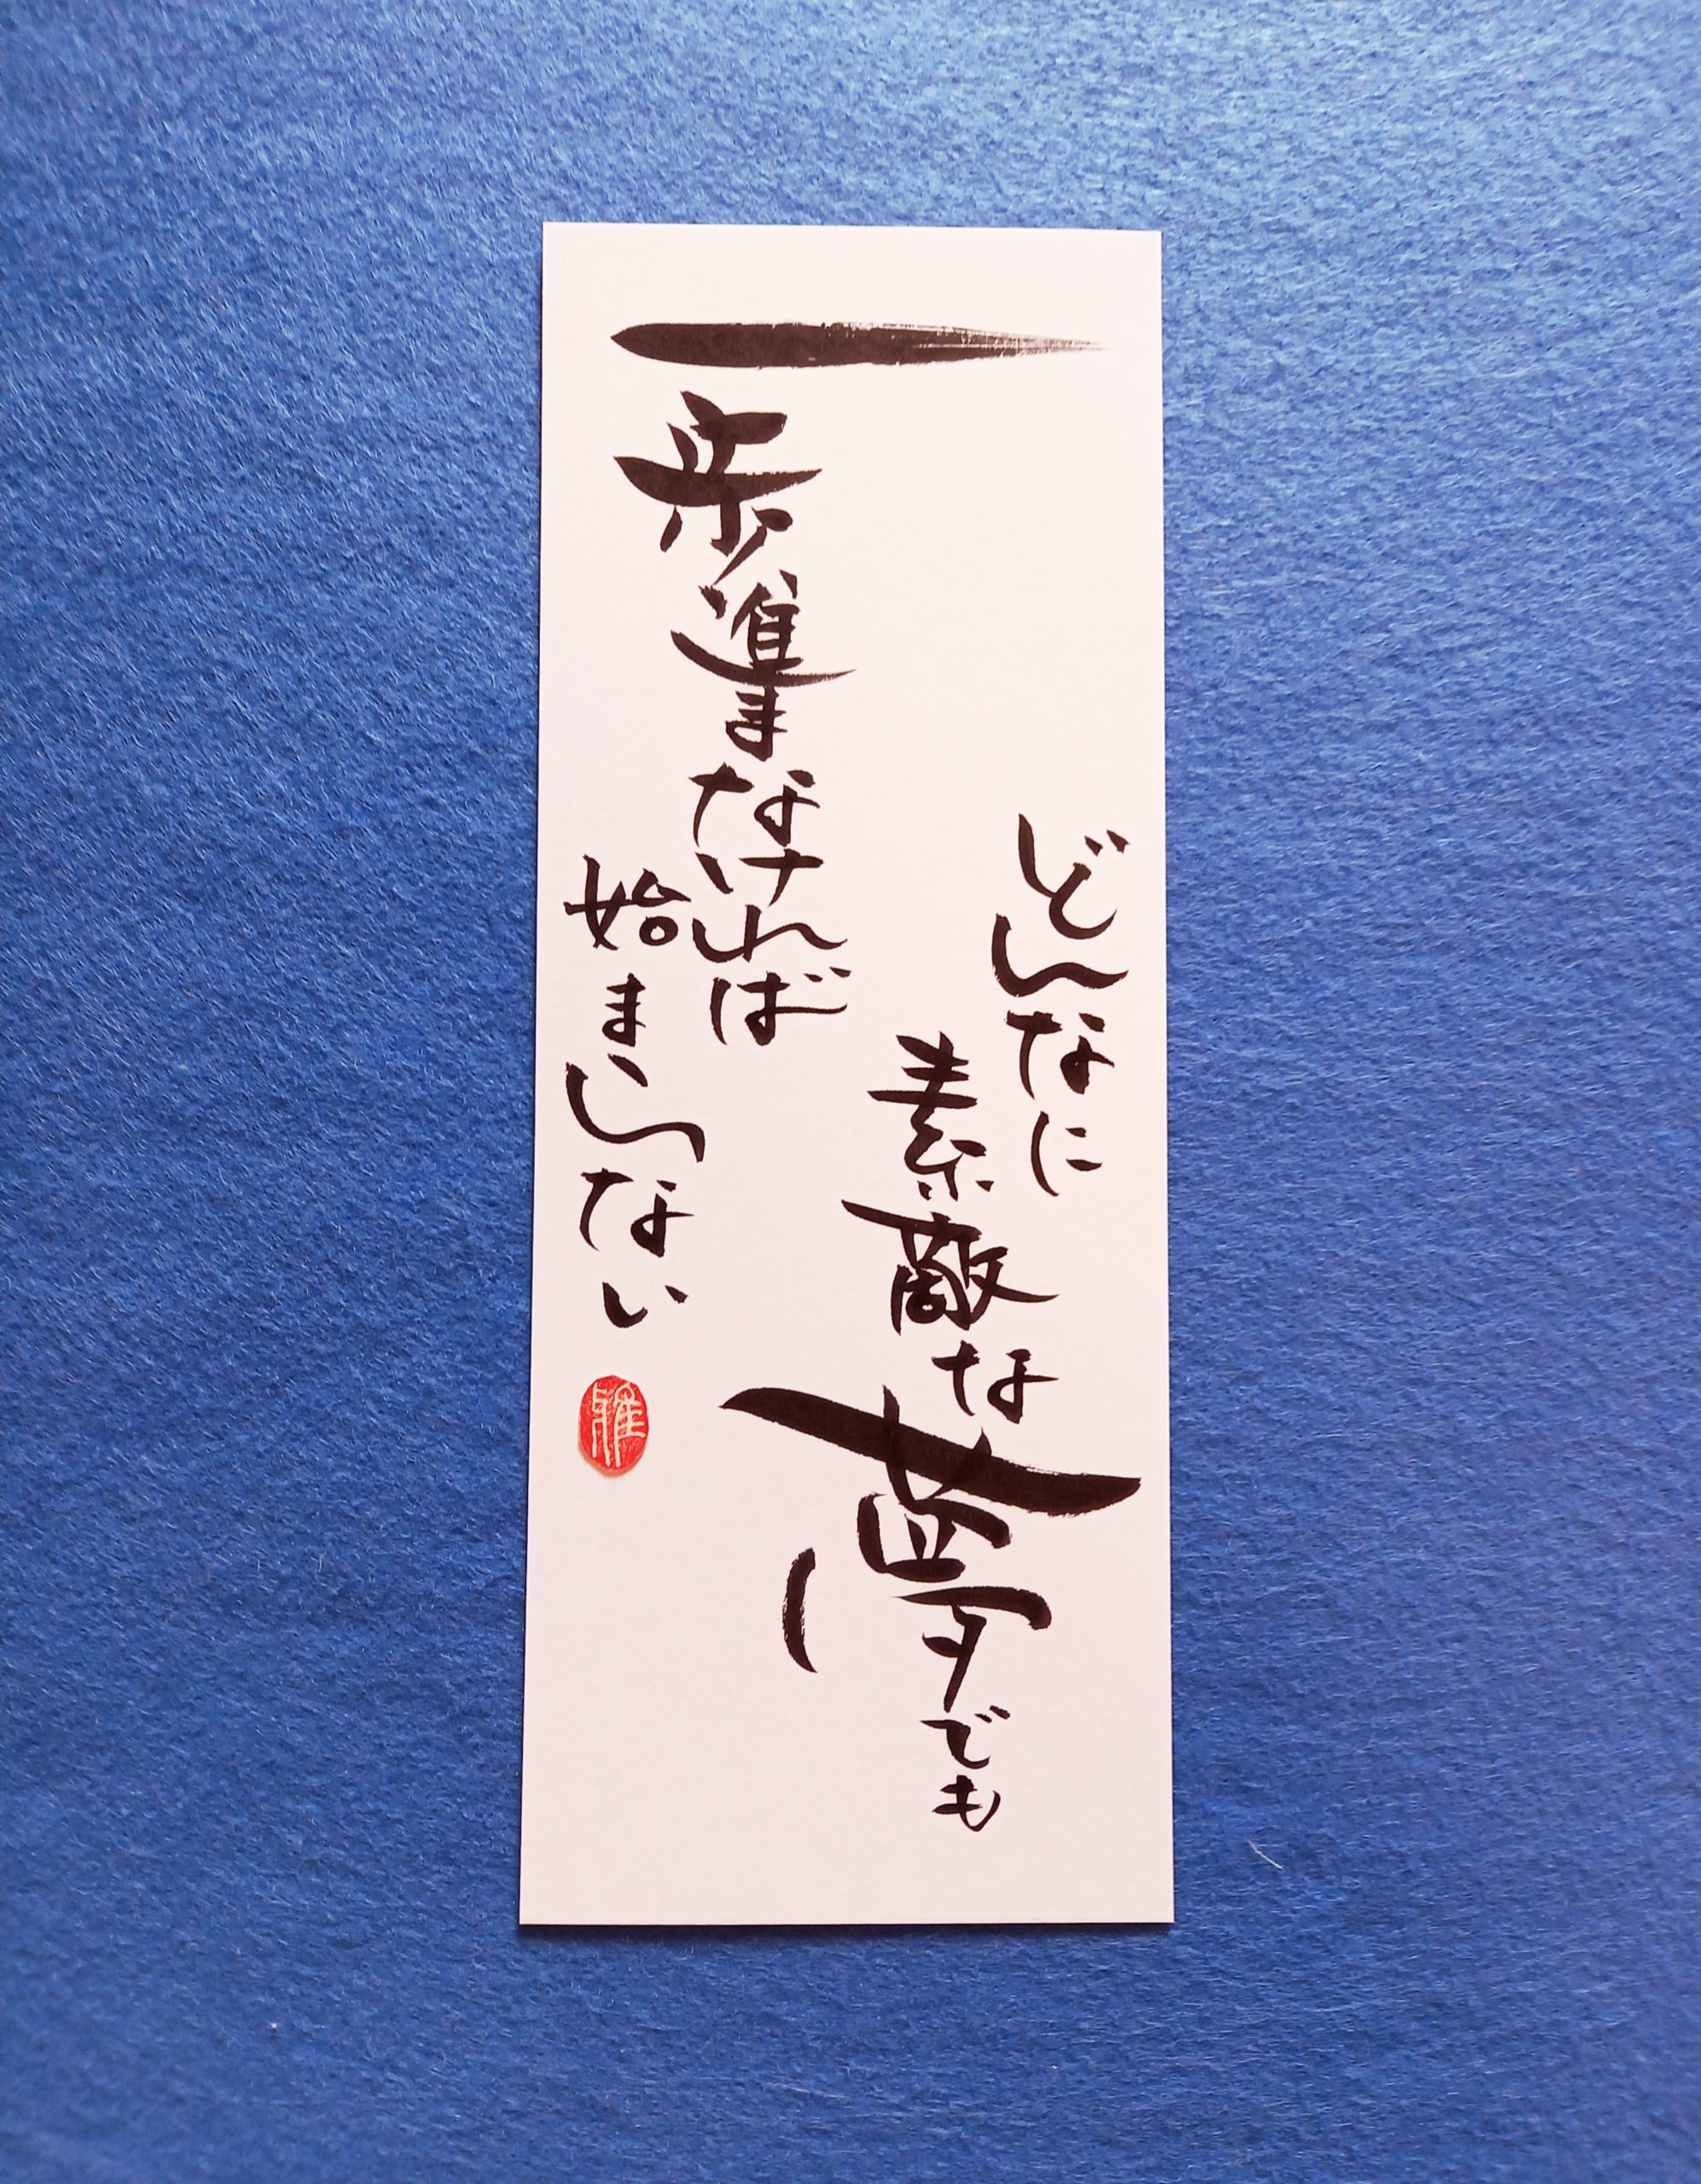 どんなに
素敵な夢でも
一歩進まなければ
始まらない
雅